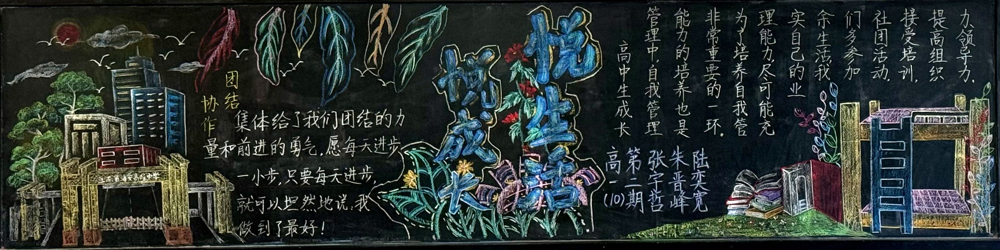 团结
协作
集体给了我们团结的力
量和前进的勇气.愿每天进步
一小步,只要每天进步,
就可以坦然地说,我
做到了最好!
悦生活
悦成长
高中生成长
管理中,自我管理
能力的培养也是
非常重要的一环.
为了培养自我管
理能力,尽可能充
实自己的业
余生活,我
们多参加
社团活动,
接受培训,
提高组织
力、领导力.
高二(10)
第二期
张宇哲
朱晋峰
陆奕宽